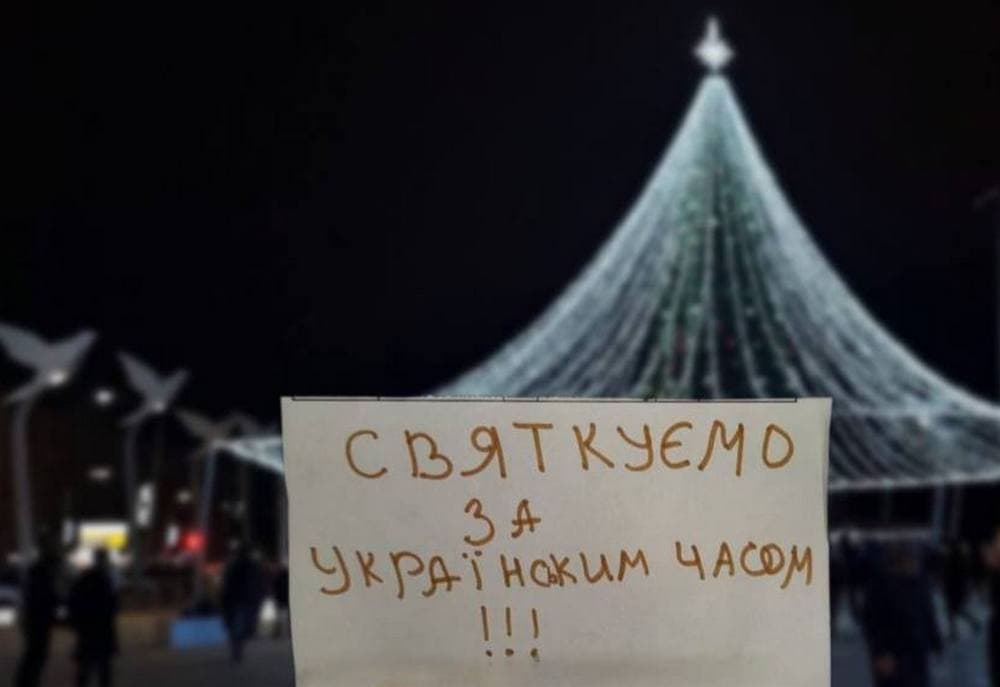 СВЯТКУЄМО
ЗА
УКРАЇНСЬКИМ ЧАСОМ
!!!